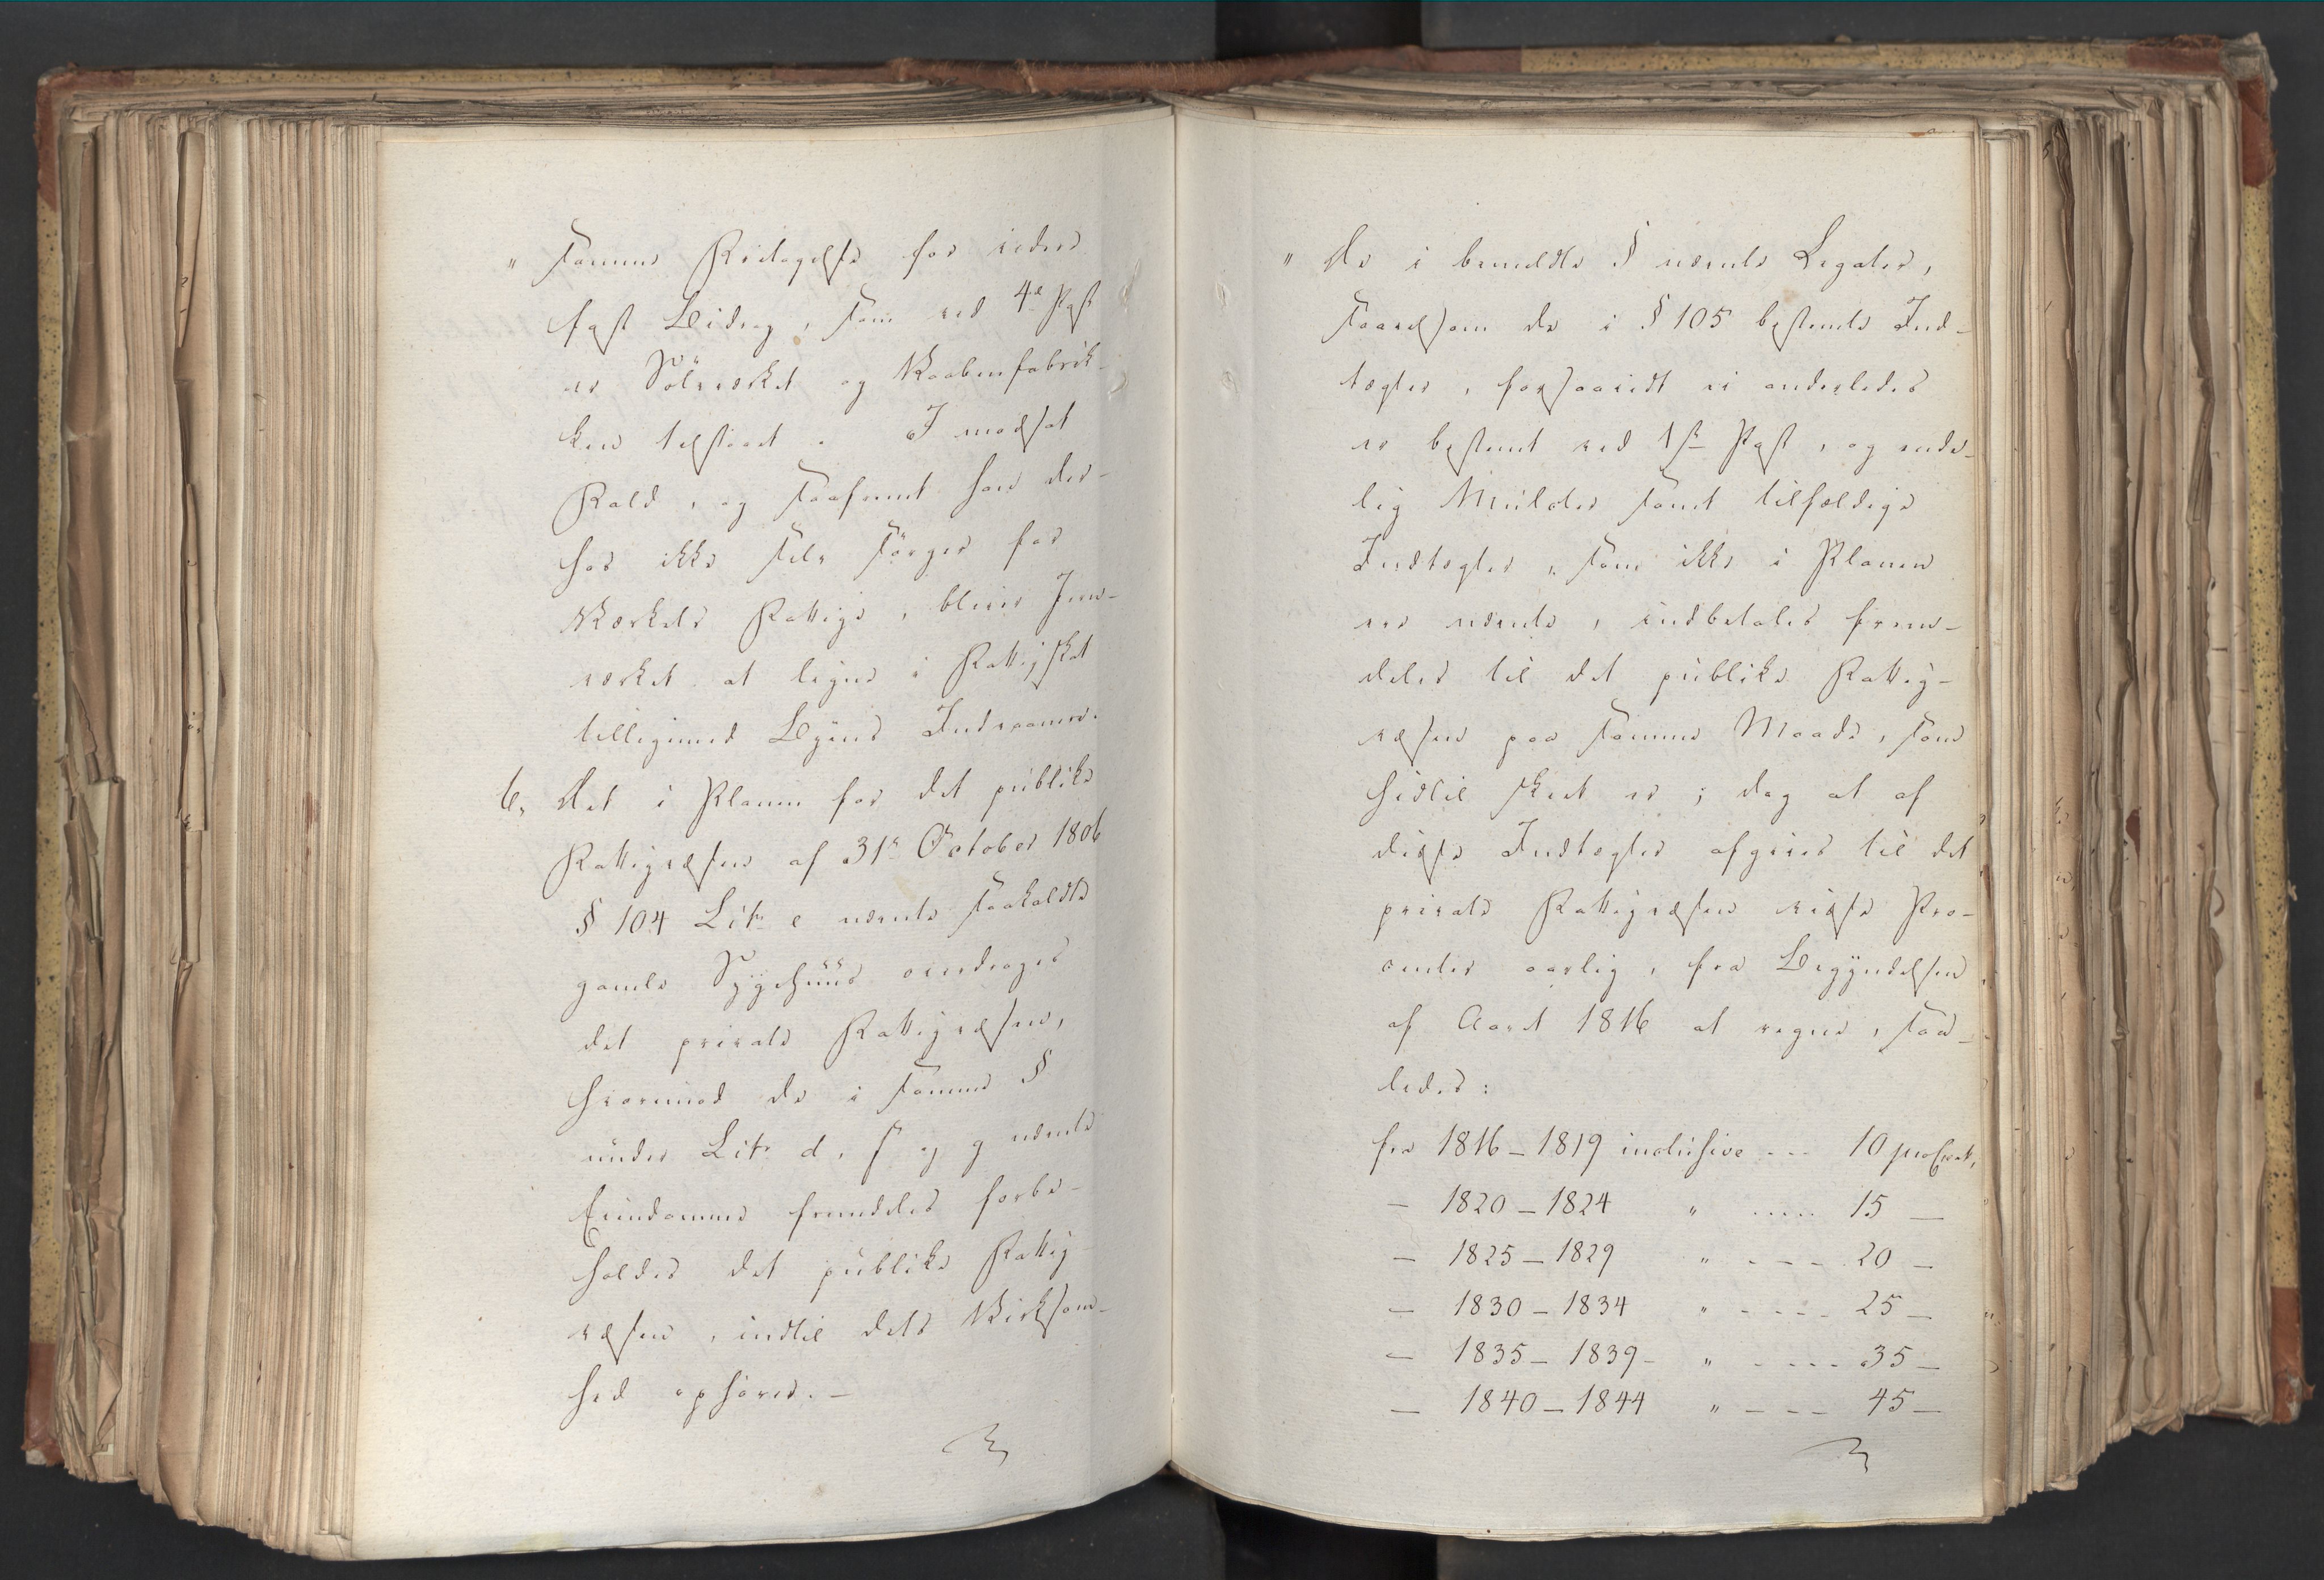 " samme Betagelse for videre
fast Bidrag, som ved 4de Post
er Sölvverket og Vaabenfabrik-
ken tilstaaet. I modsat
Fald, og saafremt hver der-
for ikke selv sörger for
Værkets Fattige, bliver Jern-
værket at ligne i Fattigskat
tilligemed Byens Indvaanere.
6, Det i Planen for det publike
Fattigvæsen af 31te October 1806
§ 104 Litr. e nævnte saakaldte
gamle Sygehuus inddrages
det private Fattigvæsen,
hvorimod de i samme §
under Litr. d, f og g nævnte
Eiendomme fremdeles forbe-
holdes det publike Fattig-
væsen, indtil dets Virksom-
hed ophører. –
" De i bemeldte § nævnte Legater,
saavelsom de i § 105 bestemte Ind-
tægter, forsaavidt ei anderledes
er bestemt ved 1ste Post, og ende-
lig Mulcter samt tilfældige
Indtægter, som ikke i Planen
ere nævnte, indbetales frem-
deles til det publike Fattig-
væsen paa samme Maade, som
hidtil skeet er; dog at af
disse Indtægter afgives til det
private Fattigvæsen visse Pro-
center aarlig, fra Begyndelsen
af Aaret 1816 at regne, saa-
ledes:
fra 1816 – 1819 inclusive --- 10 proCent,
– 1820 – 1824 " ---- 15 –
– 1825 – 1829 " ---- 20 –
– 1830 – 1834 " ---- 25 –
– 1835 – 1839 - " ---- 35 –
– 1840 – 1844 " ---- 45 –